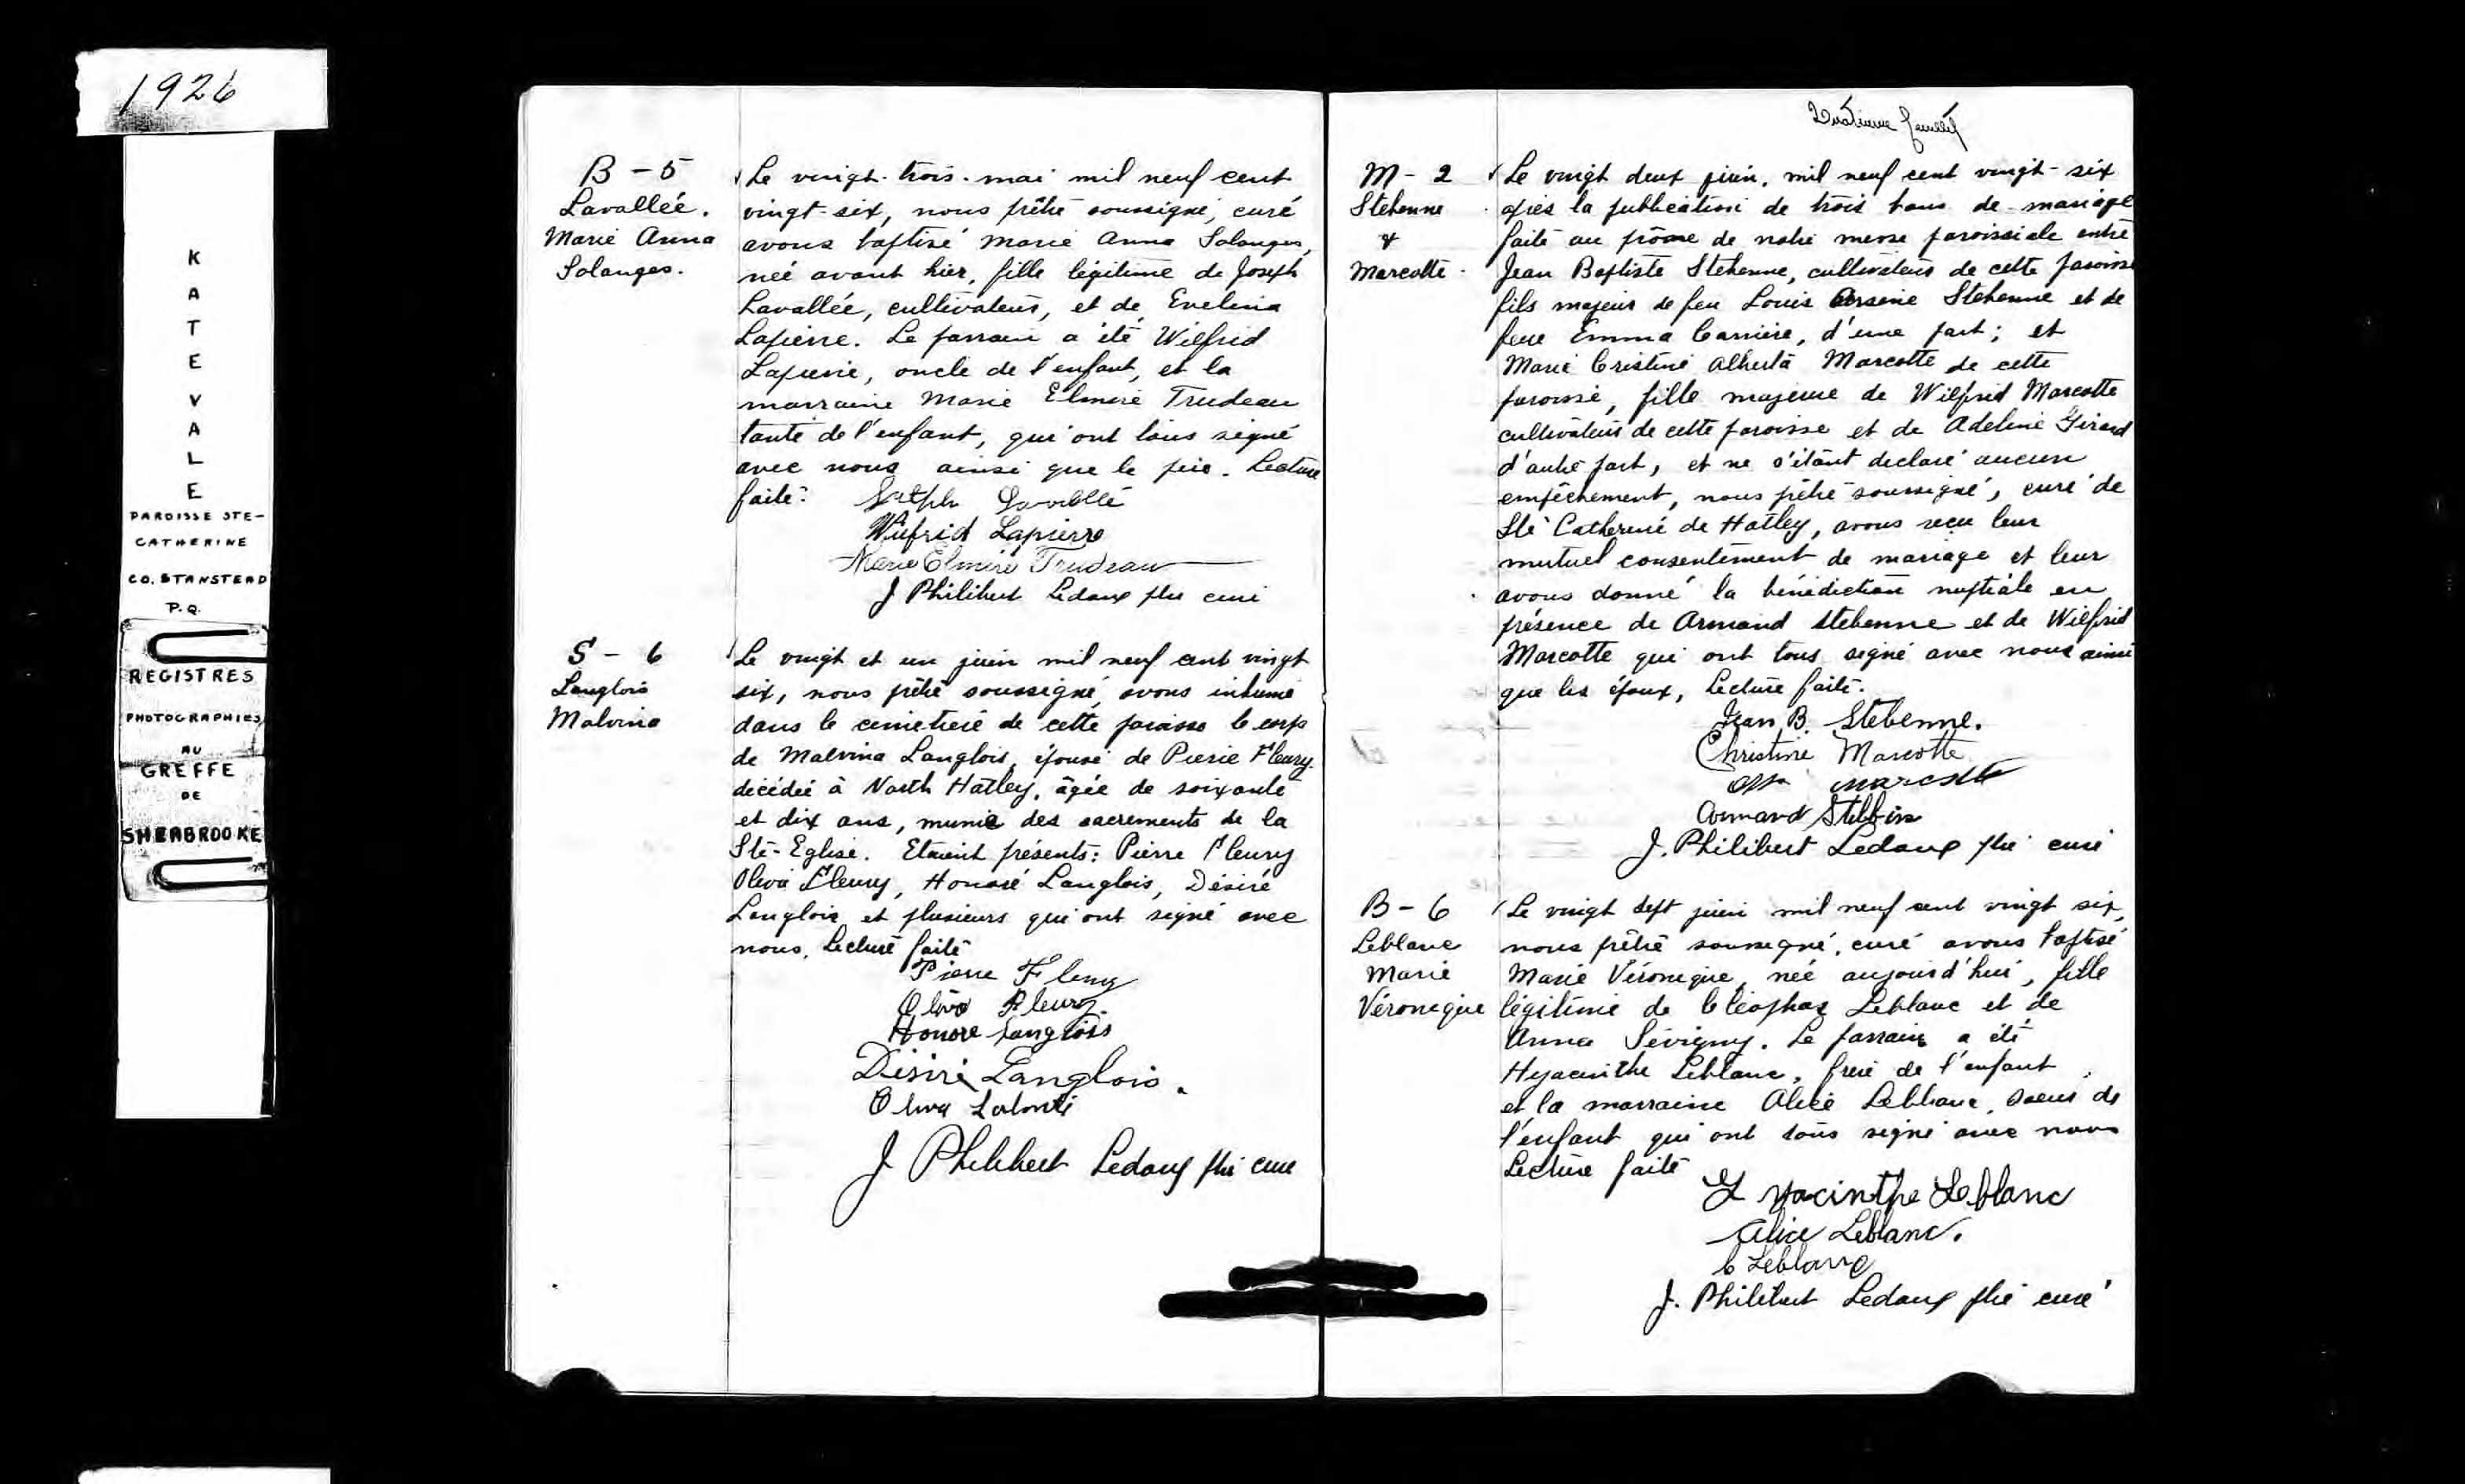 1926
K
A
T
E
V
A
L
E
PAROISSE STE-
CATHERINE
CO. STANSTEAD
P.Q.
REGISTRES
PHOTOGRAPHIES
AU
GREFFE
DE
SHERBROOKE
B - 5
Lavallée.
Marie Anna
Solanges.
Le vingt-trois mai mil neuf cent
vingt-six, nous prêtre soussigné, curé
avons baptisé Marie Anna Solanges,
née avant hier, fille légitime de Joseph
Lavallée, cultivateur, et de Evelina
Lapierre. Le parrain a été Wilfrid
Lapierre, oncle de l'enfant, et la
marraine Marie Elmire Trudeau
tante de l'enfant, qui ont tous signé
avec nous ainsi que le père. Lecture
faite.
Joseph Lavallée
Wilfrid Lapierre
Marie Elmire Trudeau
J Philibert Ledoux ptre curé
S - 6
Langlois
Malvina
Le vingt et un juin mil neuf cent vingt
six, nous prêtre soussigné, avons inhumé
dans le cimetière de cette paroisse le corps
de Malvina Langlois, épouse de Pierre Fleury.
décédée à North Hatley, âgée de soixante
et dix ans, munie des sacrements de la
Ste-Eglise. Etaient présents: Pierre Fleury
Oliva Fleury, Honoré Langlois, Désiré
Langlois et plusieurs qui ont signé avec
nous. Lecture faite
Pierre Fleury
Oliva Fleury.
Honore Langlois
Désiré Langlois.
Oliva
J Philibert Ledoux ptre curé
Quatrième feuillet
M - 2
Stebenne
&
Marcotte
Le vingt deux juin, mil neuf cent vingt-six
après la publication de trois bans de mariage
faite au prône de notre messe paroissiale entre
Jean Baptiste Stebenne, cultivateur de cette paroisse
fils majeur de feu Louis Arsène Stebenne et de
feue Emma Carrière, d'une part; et
Marie Cristine Alberta Marcotte de cette
paroisse, fille majeure de Wilfrid Marcotte
cultivateur de cette paroisse et de Adeline Girard
d'autre part, et ne s'étant déclaré aucun
empêchement, nous prêtre soussigné, curé de
Ste Catherine de Hatley, avons reçu leur
mutuel consentement de mariage et leur
avons donné la bénédiction nuptiale en
présence de Armand Stebenne et de Wilfrid
Marcotte qui ont tous signé avec nous ainsi
que les époux, Lecture faite.
Jean B. Stebenne.
Christine Marcotte
marcotte
Armand Stebbin
J. Philibert Ledoux ptre curé
B - 6
Leblanc
Marie
Véronique
Le vingt sept juin mil neuf cent vingt six,
nous prêtre soussigné, curé avons baptisé
Marie Véronique, née aujourd'hui, fille
légitime de Cléophas Leblanc et de
Anna Sévigny. Le parrain a été
Hyacinthe Leblanc, frère de l'enfant
et la marraine Alice Leblanc, soeur de
l'enfant qui ont tous signé avec nous
Lecture faite
Hyacinthe Leblanc
Alice Leblanc.
C Leblanc
J. Philibert Ledoux ptre curé